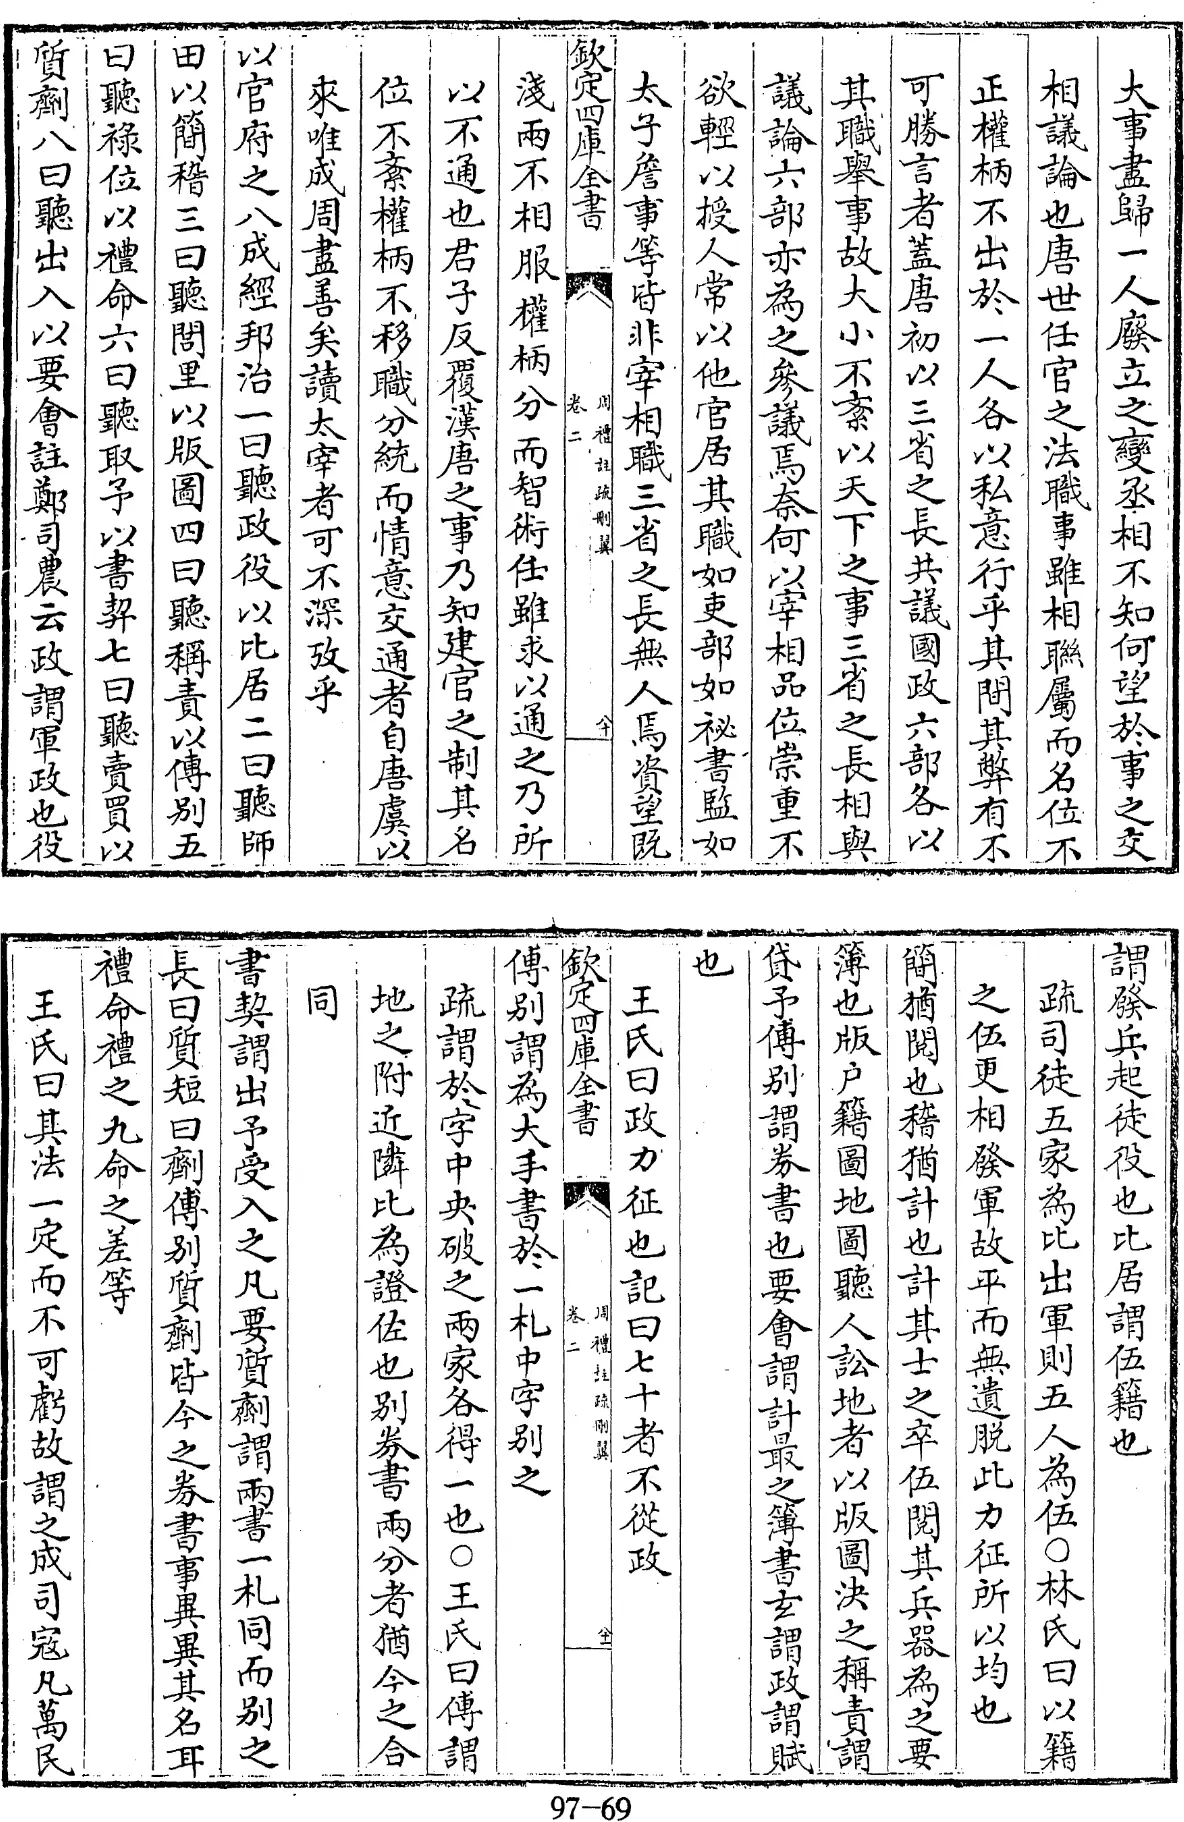 大事盡歸一人廢立之變丞相不知何望於事之交
相議論也唐世任官之法職事雖相聯屬而名位不
正權柄不出於一人各以私意行乎其間其弊有不
可勝言者蓋唐初以三省之長共議國政六部各以
其職舉事故大小不紊以天下之事三省之長相與
議論六部亦為之參議焉奈何以宰相品位崇重不
欲輕以授人常以他官居其職如吏部如祕書監如
太子詹事等皆非宰相職三省之長無人焉資望既
欽定四庫全書
周禮註疏刪翼
卷二
淺兩不相服權柄分而智術任雖求以通之乃所
以不通也君子反覆漢唐之事乃知建官之制其名
位不紊權柄不移職分統而情意交通者自唐虞以
來唯成周盡善矣讀太宰者可不深攷乎
以官府之八成經邦治一曰聽政役以比居二曰聽師
田以簡稽三曰聽閭里以版圖四曰聽稱責以傅别五
曰聽祿位以禮命六曰聽取予以書契七曰聽賣買以
質劑八曰聽出入以要會註鄭司農云政謂軍政也役
謂發兵起徒役也比居謂伍籍也
疏司徒五家為比出軍則五人為伍○林氏曰以籍
之伍更相發軍故平而無遺脱此力征所以均也
簡猶閱也稽猶計也計其士之卒伍閱其兵器為之要
簿也版户籍圖地圖聽人訟地者以版圖決之稱責謂
貸予傅别謂券書也要會謂計最之簿書玄謂政謂賦
也
王氏曰政力征也記曰七十者不從政
欽定四庫全書
周禮註疏刪翼
卷二
傅别謂為大手書於一札中字别之
疏謂於字中央破之兩家各得一也○王氏曰傅謂
地之附近隣比為證佐也别券書兩分者猶今之合
同
書契謂出予受入之凡要質劑謂兩書一札同而别之
長曰質短曰劑傅别質劑皆今之券書事異異其名耳
禮命禮之九命之差等
王氏曰其法一定而不可虧故謂之成司寇凡萬民
97-69